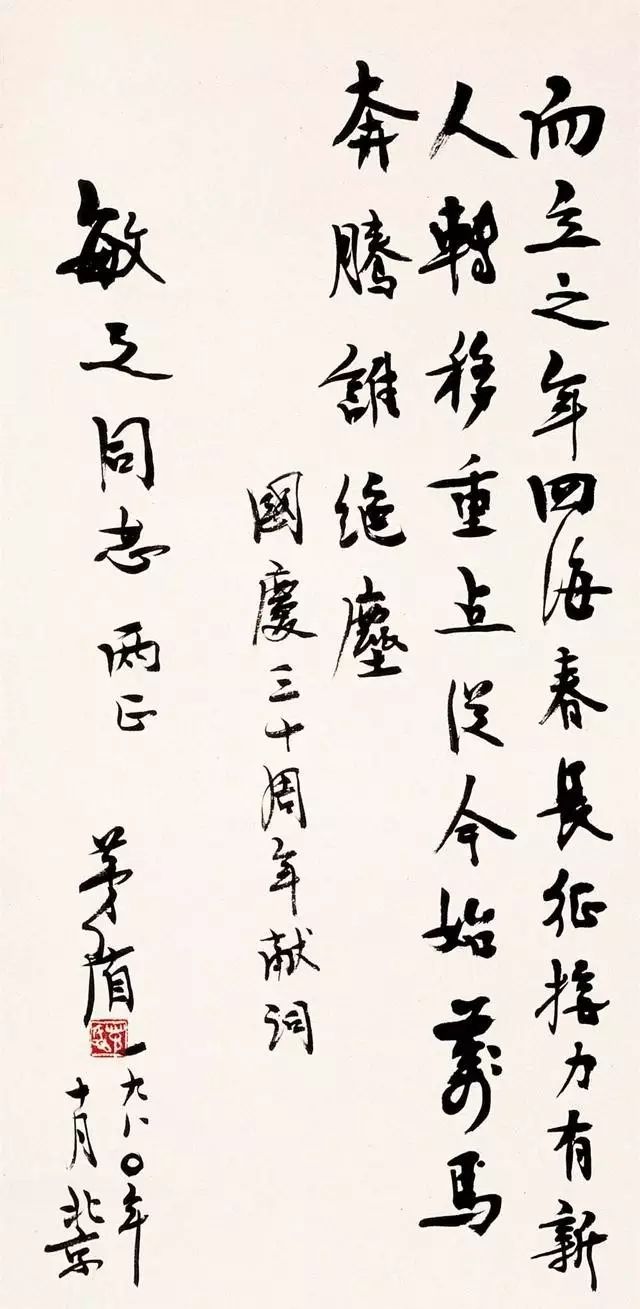 而立之年四海春長征接力有新
人轉移重点從今始萬馬
奔騰誰絶塵
國慶三十周年献詞
敏之同志 兩正
茅盾
一九八〇年
十月北京